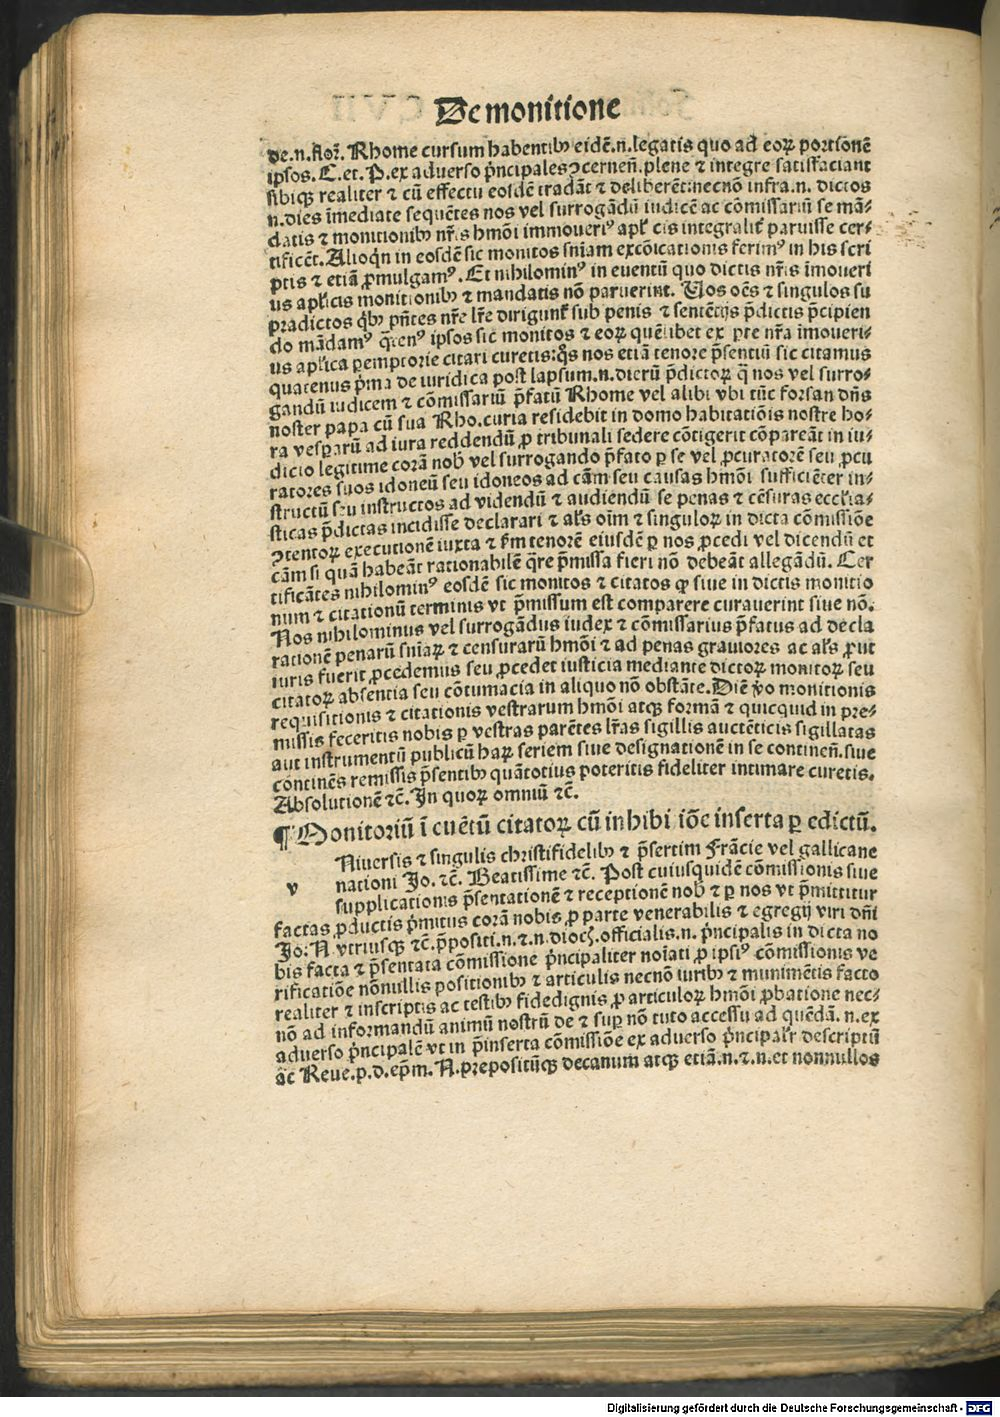 De monitione
de.n.floꝝ. Rhome cursum habentibꝰ eidē.n.legatis quo ad eoꝝ portionē
ipsos. C.et. P.ex aduerso p̄ncipales ꝯcerneñ.plene ⁊ integre satisfaciant
sibiqꝫ realiter ⁊ cū effectu eosdē tradāt ⁊ deliberēt:necnō infra.n. dictos
n.dies īmediate sequētes nos vel surrogādū iudicē ac cōmissariū se mā⸗
datis ⁊ monitionibꝰ nr̄is hmōi immoueriꝰ apl̄icis integralit̄ paruisse cer⸗
tificēt. Alioqn̄ in eosdē sic monitos sn̄iam excōicationis ferimꝰ in his scri
ptis ⁊ etiā ꝓmulgamꝰ. Et nihilominꝰ in euentū quo dictis nr̄is īmoueri
us apl̄icis monitionibꝰ ⁊ mandatis nō paruerint. Uos oēs ⁊ singulos su
pradictos qͥbꝰ pn̄tes nr̄e lr̄e dirigunt̄ sub penis ⁊ sentētijs p̄dictis p̄cipien
do mādamꝰ qͣtenꝰ ipsos sic monitos ⁊ eoꝝ quēlibet ex ꝑte nr̄a īmoueri⸗
us apl̄ica ꝑemptorie citari curetis:qͦs nos etiā tenore p̄sentiū sic citamus
quatenus pͥma de iuridica post lapsum.n.dierū p̄dictoꝝ q̄ nos vel surro⸗
gandū iudicem ⁊ cōmissariū p̄fatū Rhome vel alibi vbi tūc forsan dn̄s
noster papa cū sua Rho.curia residebit in domo habitatiōis nostre ho⸗
ra vesꝑarū ad iura reddendū ꝓ tribunali sedere cōtigerit cōpareāt in iu⸗
dicio legitime corā nobꝭ vel surrogando p̄fato ꝑ se vel ꝓcuratorē seu ꝓcu
ratores suos idoneū seu idoneos ad cām seu causas hmōi sufficiēter in⸗
structū seu instructos ad videndū ⁊ audiendū se penas ⁊ cēsuras eccl̄ia⸗
sticas p̄dictas incidisse declarari ⁊ al̄s oīm ⁊ singuloꝝ in dicta cōmissiōe
ꝯtentoꝝ executionē iuxta ⁊ ẜm tenorē eiusdē ꝑ nos ꝓcedi vel dicendū et
cām si quā habeāt rationabilē qͣre p̄missa fieri nō debeāt allegādū. Cer
tificātes nihilominꝰ eosdē sic monitos ⁊ citatos ꝙ siue in dictis monitio
num ⁊ citationū terminis vt p̄missum est comparere curauerint siue nō.
Nos nihilominus vel surrogādus iudex ⁊ cōmissarius p̄fatus ad decla
rationē penarū sn̄iaꝝ ⁊ censurarū hmōi ⁊ ad penas grauiores ac al̄s ꝓut
iuris fuerit ꝓcedemus seu ꝓcedet iusticia mediante dictoꝝ monitoꝝ seu
citatoꝝ absentia seu cōtumacia in aliquo nō obstāte. Diē ꝟo monitionis
requisitionis ⁊ citationis vestrarum hmōi atqꝫ formā ⁊ quicquid in pre⸗
missis feceritis nobis ꝑ vestras patētes lr̄as sigillis auctēticis sigillatas
aut instrumentū publicū haꝝ seriem siue designationē in se contineñ.siue
continēs remissis p̄sentibꝰ quātotius poteritis fideliter intimare curetis.
Absolutionē ⁊c̄. In quoꝝ omniū ⁊c̄.
¶ Monitoriū ī euētū citatoꝝ cū inhibi iōe inserta ꝑ edictū.
v
Niuersis ⁊ singulis christifidelibꝰ ⁊ p̄sertim Frācie vel gallicane
nationi Jo. ⁊c̄. Beatissime ⁊c̄. Post cuiusquidē cōmissionis siue
supplicationis p̄sentationē ⁊ receptionē nobꝭ ⁊ ꝑ nos vt p̄mittitur
factas ꝓductis pͥmitus corā nobis ꝓ parte venerabilis ⁊ egregij viri dn̄i
Jo. N vtriusqꝫ ⁊c̄.p̄positi.n.⁊.n.dioc̄.officialis.n. pͥncipalis in dicta no
bis facta ⁊ p̄sentata cōmissione pͥncipaliter noīati ꝓ ipsiꝰ cōmissionis ve
rificatiōe nōnullis positionibꝰ ⁊ articulis necnō iuribꝰ ⁊ munimētis facto
realiter ⁊ inscriptis ac testibꝰ fidedignis ꝓ articuloꝝ hmōi ꝓbatione nec⸗
nō ad informandū animū nostrū de ⁊ suꝑ nō tuto accessu ad quēdā. n.ex
aduerso pͥncipalē vt in p̄inserta cōmissiōe ex aduerso pͥncipalr̄ descriptū
ac Reue.p.d.ep̄m. N.prepositūqꝫ decanum atqꝫ etiā.n.⁊.n.et nonnullos
Digitalisierung gefördert durch die Deutsche Forschungsgemeinschaft - DFG